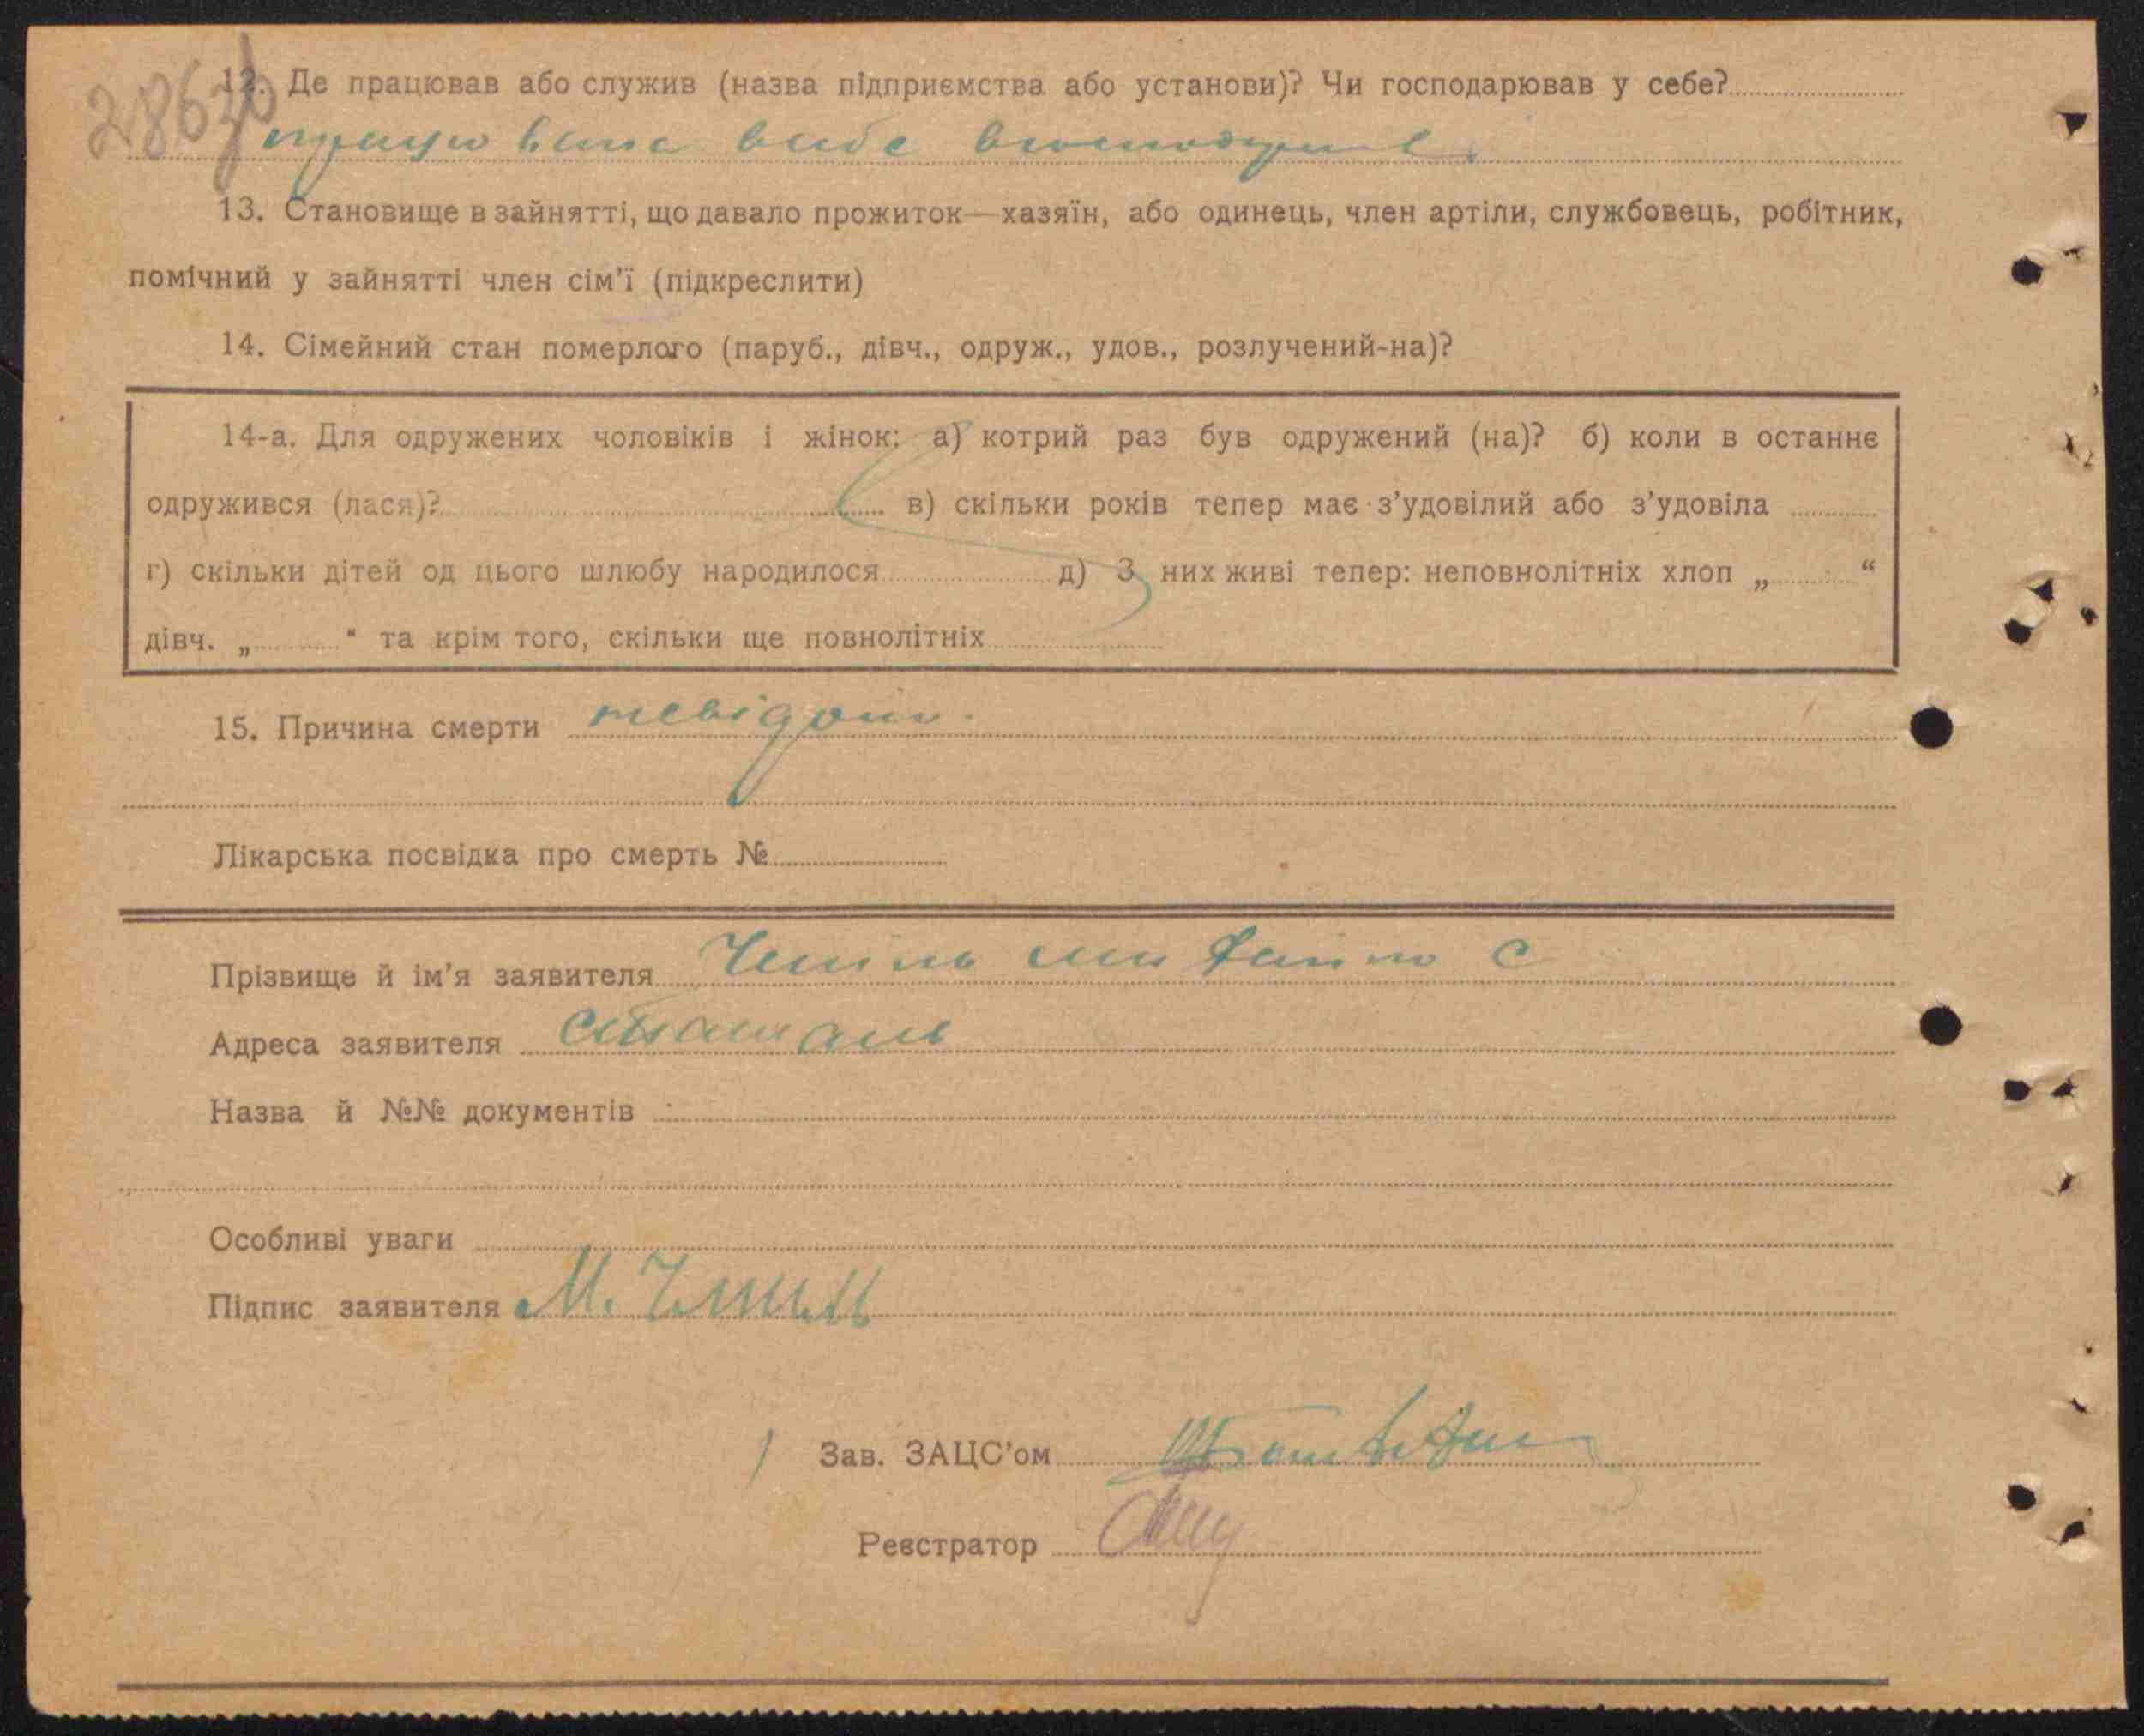 12. Де працював або служив (назва підприємства або установи)? Чи господарював у себе?
працювала
13. Становище в зайнятті, що давало прожиток—хазяїн, або одинець, член артіли, службовець, робітник,
помічний у зайнятті член сім'ї (підкреслити)
14. Сімейний стан померлого (паруб., дівч., одруж., удов., розлучений-на)?
14-а. Для одружених чоловіків і жінок: а) котрий раз був одружений (на)? б) коли в останнє
одружився (лася)? в) скільки років тепер має з'удовілий або з'удовіла
г) скільки дітей од цього шлюбу народилося д) З них живі тепер: неповнолітніх хлоп „ “
дівч. „ “ та крім того, скільки ще повнолітніх
15. Причина смерти невідома.
Лікарська посвідка про смерть №
Прізвище й ім'я заявителя Михайло С
Адреса заявителя
Назва й №№ документів
Особливі уваги
Підпис заявителя М.
Зав. ЗАЦС'ом
Реєстратор